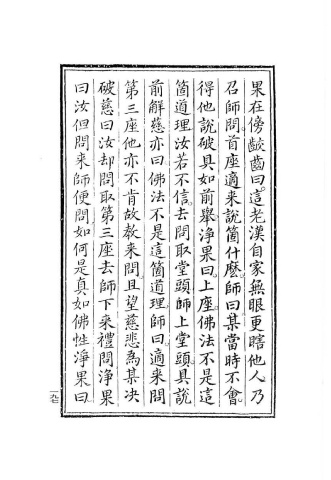 果在傍齩齒曰這老漢自家無眼更瞎他人乃
召師問首座適來說箇什麽師曰某當時不會
得他說破具如前舉淨果曰上座佛法不是這
箇道理汝若不信去問取堂頭師上堂頭具說
前解慈亦曰佛法不是這箇道理師曰適來問
第三座他亦不肯故教来問且望慈悲為某决
破慈曰汝却問取第三座去師下來禮問淨果
曰汝但問来師便問如何是真如佛性淨果曰
一九七